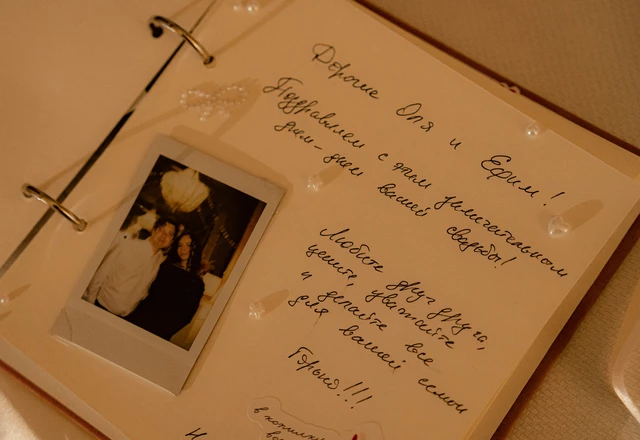 Дорогие Оля и Ефим!
Поздравляем с этим замечательном
днём - днём вашей свадьбы!
Любите друг друга,
цените, уважайте
и делайте все
для вашей семьи
Горько!!!
в копилку